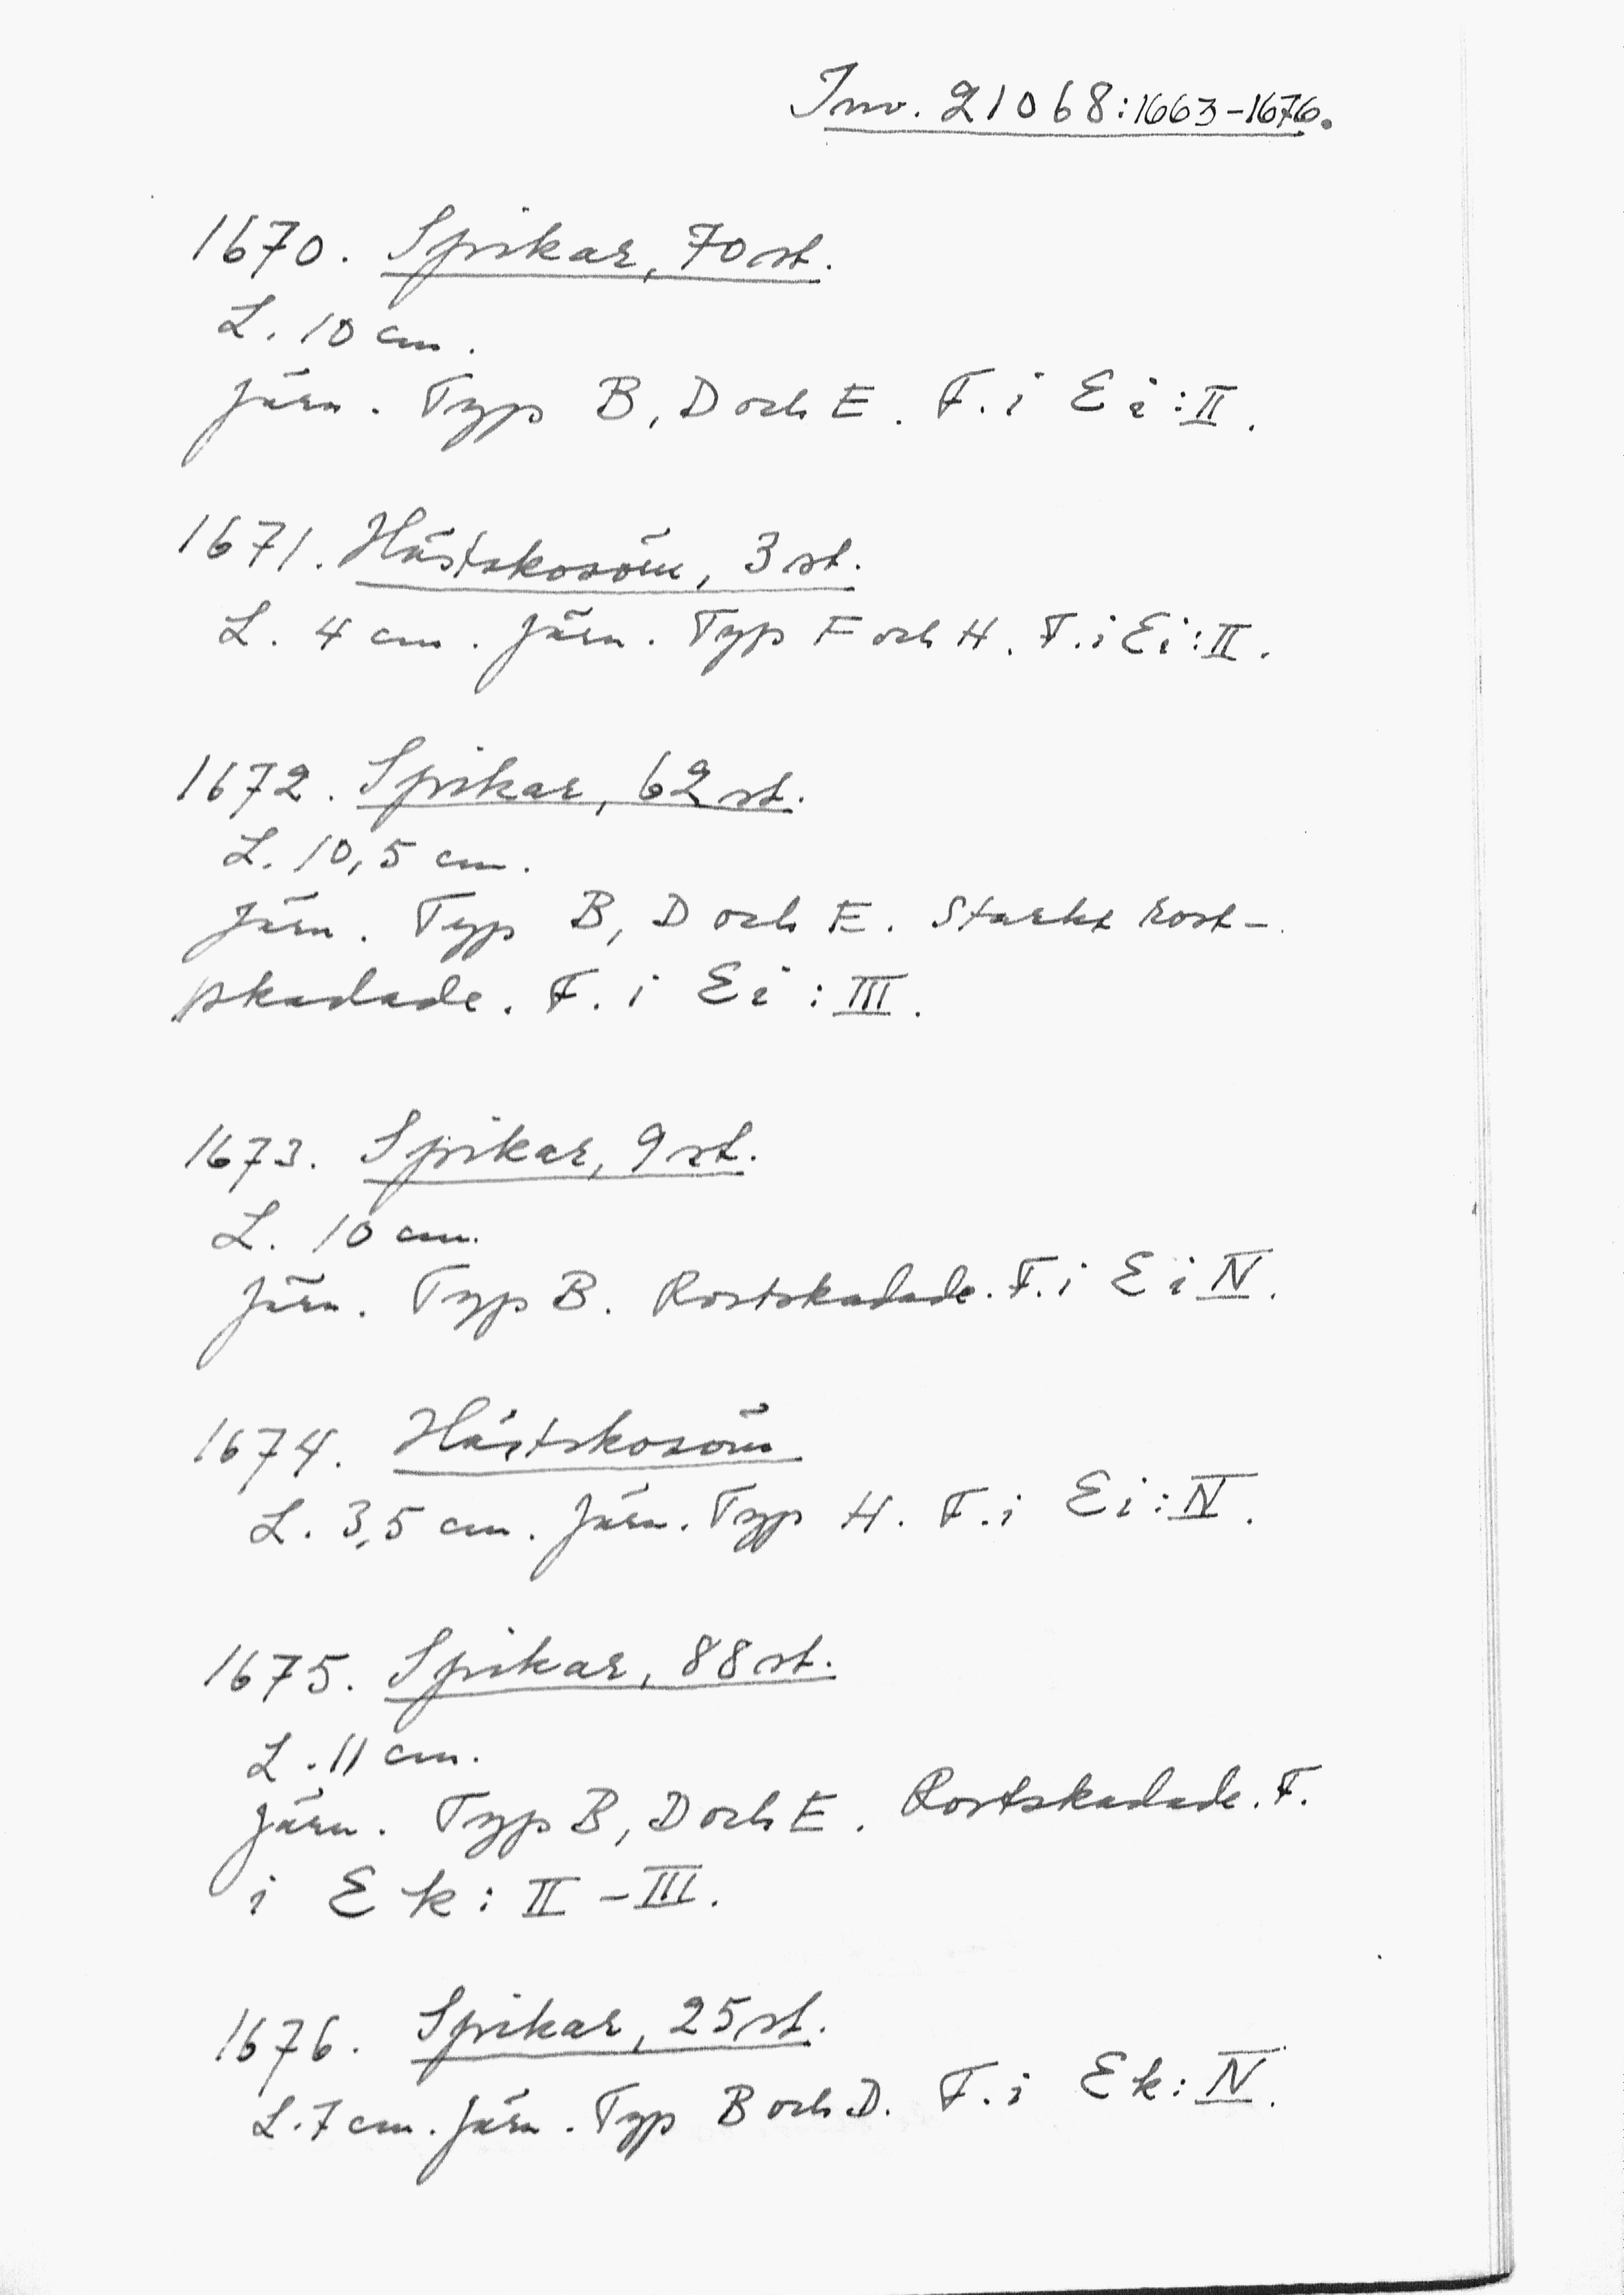 Inv. 21068:1663-1676.
1670. Spikar, 70 st.
L. 10 cm.
Järn. Typ B, D och E. F. i Ei:II.
1671. Hästskosöm, 3 st.
L. 4 cm. Järn. Typ F och H. F. i Ei:II.
1672. Spikar, 62 st.
L. 10,5 cm.
Järn. Typ B, D och E. Starkt rost-
skadade. F. i Ei:III.
1673. Spikar, 9 st.
L. 10 cm.
Järn. Typ B. Rostskadade. F. i Ei IV.
1674. Hästskosöm
L. 3,5 cm. Järn. Typ H. F. i Ei:IV.
1675. Spikar, 88 st.
L. 11 cm.
Järn. Typ B, D och E. Rostskadade. F.
i Ek: II-III.
1676. Spikar, 25 st.
L. 7 cm. Järn. Typ B och D. F. i Ek: IV.